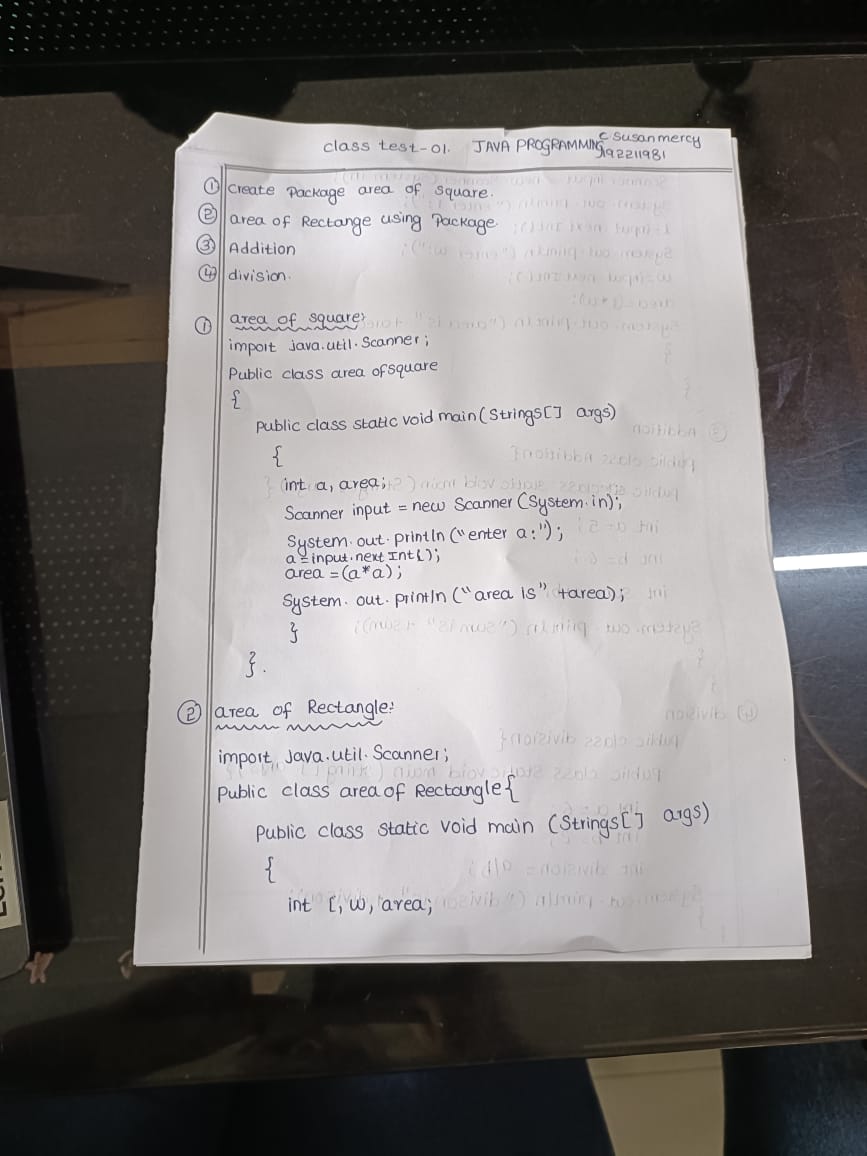 class test-01. JAVA PROGRAMMING
C Susanmercy
192211981
① Create Package area of square.
② area of Rectange using Package
③ Addition
④ division.
① area of square:
import java.util.Scanner;
Public class area ofsquare
{
public class static void main(Strings[] args)
{
int a, area;
Scanner input = new Scanner (System.in);
System.out.println ("enter a:");
a = input.next Int();
area = (a*a);
System.out.println ("area is" +area);
}
}.
② area of Rectangle:
import Java.util.Scanner;
Public class area of Rectangle{
Public class static void main (Strings[] args)
{
int l, w, area;